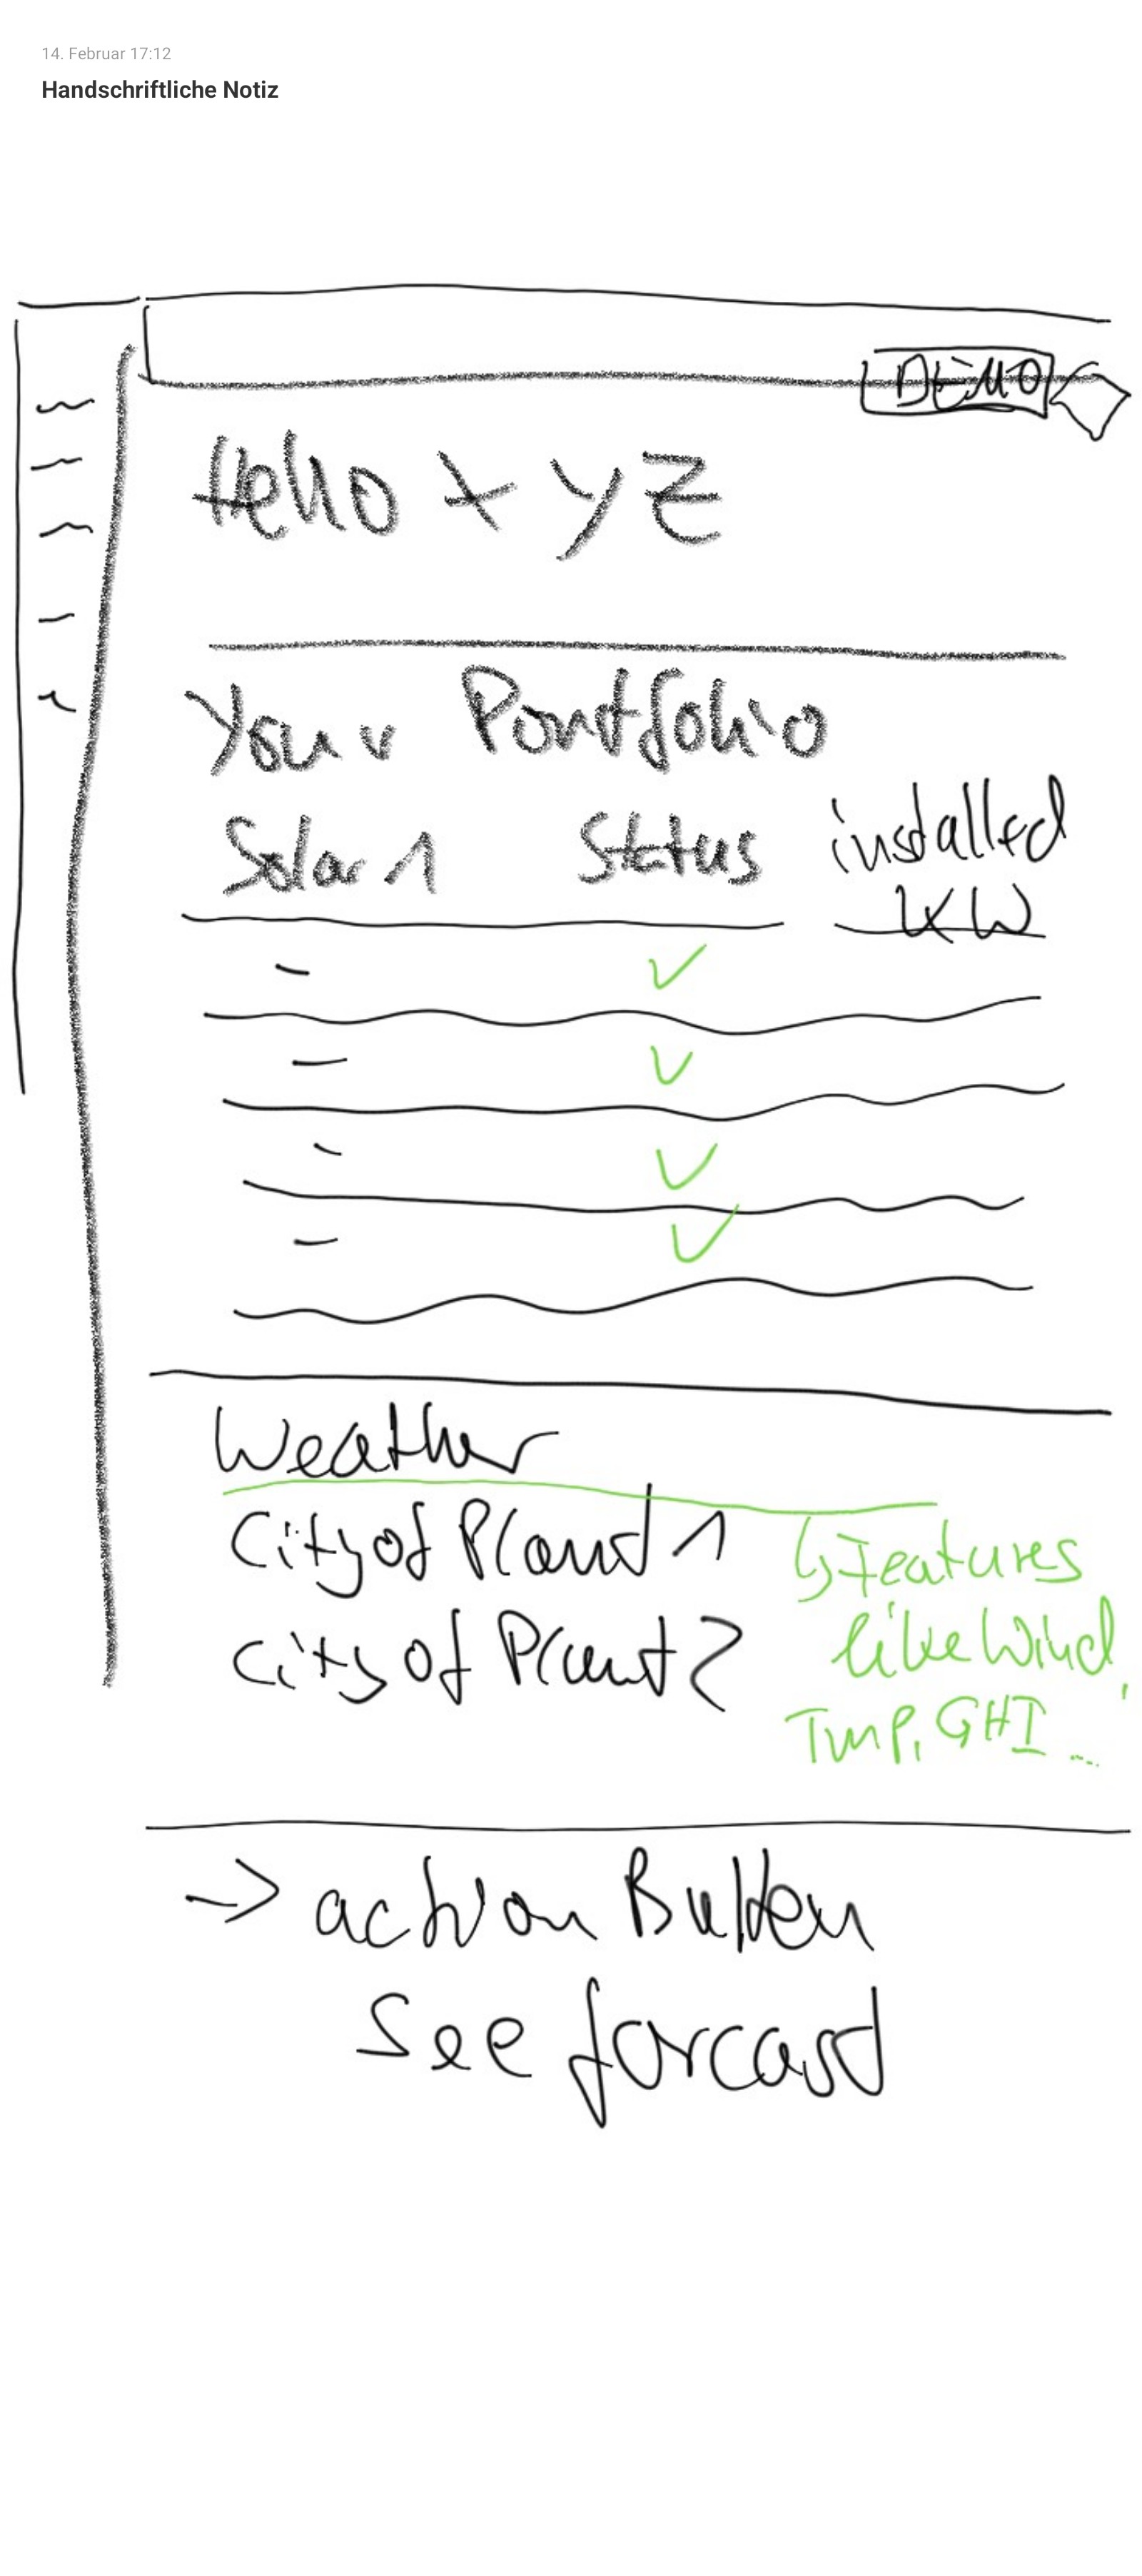 14. Februar 17:12
Handschriftliche Notiz
DEMO
Hello x y z
Your Portfolio
Solar 1 Status installed
KW
Weather
City of Plant 1 ↳ Features
City of Plant 2 like Wind,
Tmp, GHI ...
-> action Button
See forcast